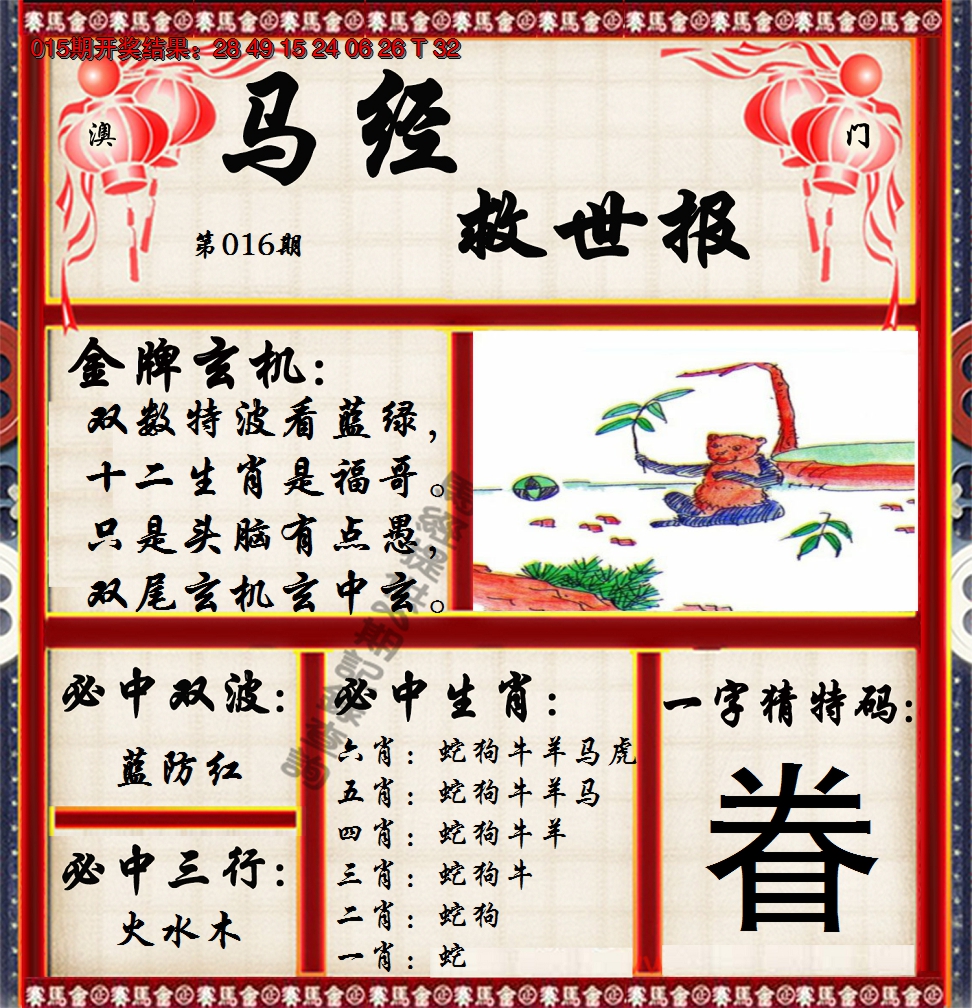 015期开奖结果：28 49 15 24 06 26 T 32
澳
门
马经
救世报
第016期
金牌玄机：
双数特波看蓝绿，
十二生肖是福哥。
只是头脑有点愚，
双尾玄机玄中玄。
必中双波：
蓝防红
必中三行：
火水木
必中生肖：
六肖：蛇狗牛羊马虎
五肖：蛇狗牛羊马
四肖：蛇狗牛羊
三肖：蛇狗牛
二肖：蛇狗
一肖：蛇
一字猜特码：
眷